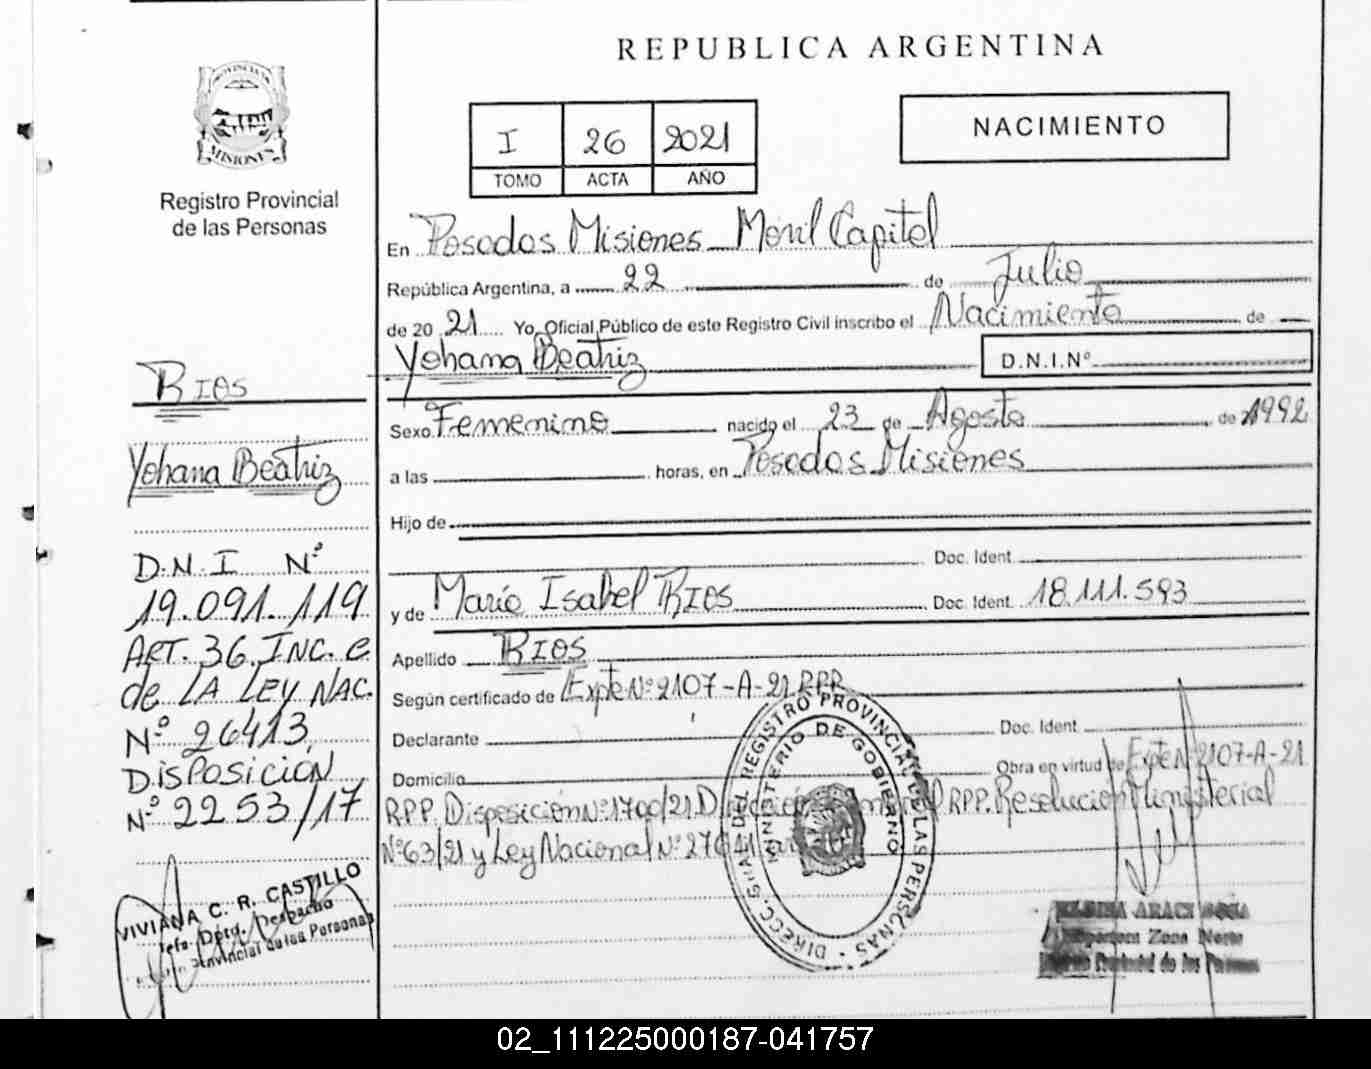 REPUBLICA ARGENTINA
PROVINCIA DE
MISIONES
Registro Provincial
de las Personas
I 26 2021
TOMO ACTA AÑO
NACIMIENTO
En Posadas Misiones Móvil Capital
República Argentina, a 22 de Julio
de 20 21 Yo, Oficial Público de este Registro Civil inscribo el Nacimiento de
Yohana Beatriz D.N.I.Nº
Sexo Femenino nacido el 23 de Agosto de 1992
a las horas, en Posadas Misiones
Hijo de
Doc. Ident.
y de María Isabel RIOS Doc. Ident. 18.111.593
Apellido RIOS
Según certificado de Expte Nº 2107-A-21 RPP
Declarante Doc. Ident.
Domicilio Obra en virtud de Expte Nº 2107-A-21
RPP. Disposición Nº 1700/21 RPP. Resolución Ministerial
Nº 63/21 y Ley Nacional Nº
RIOS
Yohana Beatriz
D.N.I Nº
19.091.119
ART. 36 INC. e
de LA LEY NAC.
Nº 26413
DISPOSICION
Nº 2253/17
VIVIANA C. R. CASTILLO
Jefa Dpto. Despacho
Provincial de las Personas
DIRECC. GRAL. DEL REGISTRO PROVINCIAL DE LAS PERSONAS
MINISTERIO DE GOBIERNO
Zona Norte
Provincial de las Personas
02_111225000187-041757